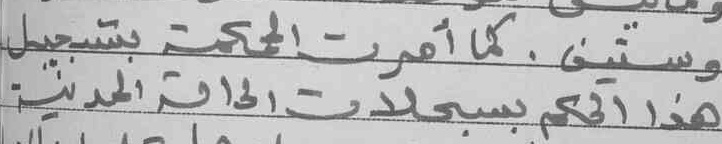 وستين . كما أمرت المحكمة بتسجيل
هذا الحكم بسجلات الحالة المدنية